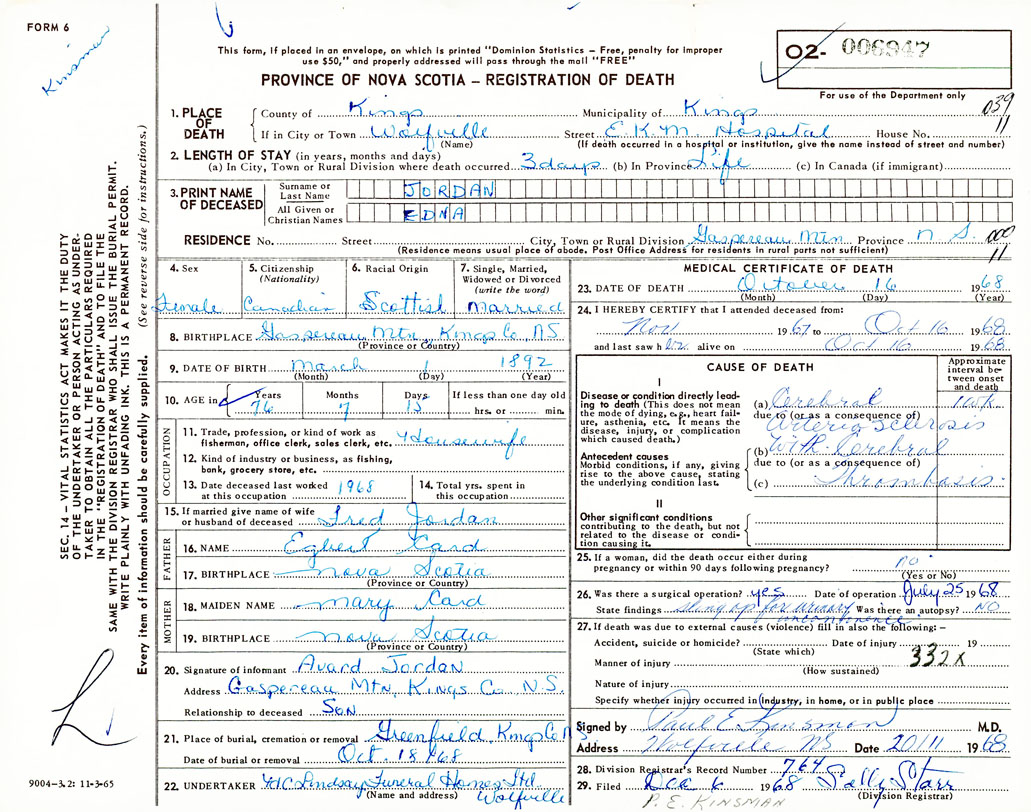 FORM 6
Kinsman
This form, if placed in an envelope, on which is printed "Dominion Statistics – Free, penalty for improper
use $50," and properly addressed will pass through the mail "FREE"
PROVINCE OF NOVA SCOTIA – REGISTRATION OF DEATH
O2- 006947
For use of the Department only
039
11
1. PLACE OF DEATH
County of Kings Municipality of Kings
If in City or Town Wolfville Street E.K.M. Hospital House No.
(Name) (If death occurred in a hospital or institution, give the name instead of street and number)
2. LENGTH OF STAY (in years, months and days)
(a) In City, Town or Rural Division where death occurred 3 days (b) In Province Life (c) In Canada (if immigrant)
3. PRINT NAME OF DECEASED
Surname or Last Name JORDAN
All Given or Christian Names EDNA
RESIDENCE No. Street City, Town or Rural Division Gaspereau Mtn Province N S.
000
11
(Residence means usual place of abode. Post Office Address for residents in rural parts not sufficient)
4. Sex Female
5. Citizenship (Nationality) Canadian
6. Racial Origin Scottish
7. Single, Married, Widowed or Divorced (write the word) Married
8. BIRTHPLACE Gaspereau Mtn, Kings Co, NS
(Province or Country)
9. DATE OF BIRTH March 1 1892
(Month) (Day) (Year)
10. AGE in Years 76 Months 7 Days 15 If less than one day old hrs. or min.
OCCUPATION
11. Trade, profession, or kind of work as fisherman, office clerk, sales clerk, etc. Housewife
12. Kind of industry or business, as fishing, bank, grocery store, etc.
13. Date deceased last worked at this occupation 1968
14. Total yrs. spent in this occupation
15. If married give name of wife or husband of deceased Fred Jordan
FATHER
16. NAME Egbert Card
17. BIRTHPLACE Nova Scotia
(Province or Country)
MOTHER
18. MAIDEN NAME Mary Card
19. BIRTHPLACE Nova Scotia
(Province or Country)
20. Signature of informant Avard Jordan
Address Gaspereau Mtn, Kings Co N.S.
Relationship to deceased Son
21. Place of burial, cremation or removal Greenfield, Kings Co N
Date of burial or removal Oct. 18/68
22. UNDERTAKER W.C. Lindsay Funeral Homes Ltd
(Name and address) Wolfville
MEDICAL CERTIFICATE OF DEATH
23. DATE OF DEATH October 16 1968
(Month) (Day) (Year)
24. I HEREBY CERTIFY that I attended deceased from:
Nov 1967 to Oct 16 1968
and last saw her alive on Oct 16 1968
CAUSE OF DEATH
Approximate interval between onset and death
I
Disease or condition directly leading to death (This does not mean the mode of dying, e.g., heart failure, asthenia, etc. It means the disease, injury, or complication which caused death.)
(a) Cerebral 1 wk.
due to (or as a consequence of)
Arterio Sclerosis
Antecedent causes
Morbid conditions, if any, giving rise to the above cause, stating the underlying condition last.
(b) With Cerebral
due to (or as a consequence of)
(c) Thrombosis.
II
Other significant conditions contributing to the death, but not related to the disease or condition causing it.
25. If a woman, did the death occur either during pregnancy or within 90 days following pregnancy? no
(Yes or No)
26. Was there a surgical operation? yes Date of operation July 25 1968
State findings sling op for urinary incontinence Was there an autopsy? NO
27. If death was due to external causes (violence) fill in also the following: –
Accident, suicide or homicide? Date of injury 19
(State which)
332X
Manner of injury
(How sustained)
Nature of injury
Specify whether injury occurred in industry, in home, or in public place
Signed by Paul E Kinsman M.D.
Address Wolfville NS Date 20/11 1968
28. Division Registrar's Record Number 764
29. Filed Dec 6 1968 Sally Starr
(Division Registrar)
P. E. KINSMAN
SEC. 14 – VITAL STATISTICS ACT MAKES IT THE DUTY
OF THE UNDERTAKER OR PERSON ACTING AS UNDER-
TAKER TO OBTAIN ALL THE PARTICULARS REQUIRED
IN THE "REGISTRATION OF DEATH" AND TO FILE THE
SAME WITH THE DIVISION REGISTRAR WHO SHALL ISSUE THE BURIAL PERMIT.
WRITE PLAINLY WITH UNFADING INK. THIS IS A PERMANENT RECORD.
Every item of information should be carefully supplied. (See reverse side for instructions.)
L
9004-3.2: 11-3-65